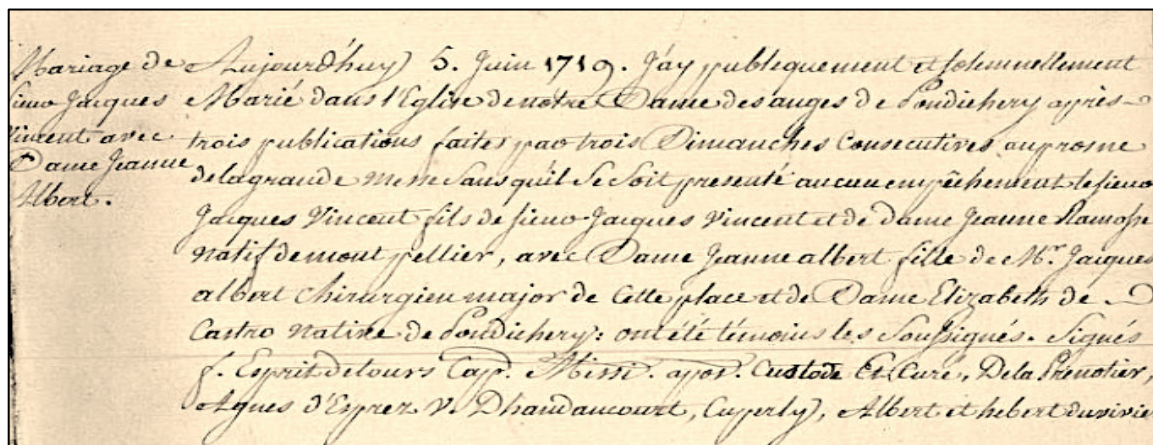 Mariage de
sieur Jacques
Vincent avec
Dame Jeanne
Albert.
Aujourd'huy 5. Juin 1719. J'ay publiquement et solemnellement
Marié dans l'Eglise de notre Dame des anges de Pondichery après
trois publications faites par trois Dimanches Consecutives au prosne
de la grande Messe Sans qu'il Se Soit presenté aucun empêchement le sieur
Jacques Vincent fils de sieur Jacques Vincent et de dame Jeanne
natif de mont pellier, avec Dame Jeanne albert fille de Mr. Jacques
albert Chirurgien major de Cette place et de Dame Elizabeth de
Castro native de Pondichery: ont été témoins les Soussignés. Signés
f. Esprit de tours Cap. Missi. apos. Custode Et Curé, De la Prenotier,
Agnes d'Esprez V. Dhandancourt, Cuperly, Albert et hebert